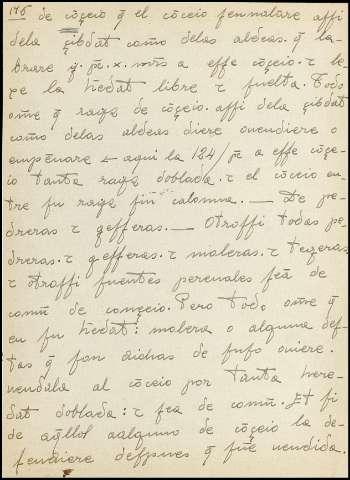 176 de cōçeio q̄ el cōceio fennalare affi
dela çibdat como delas aldeas. q̄ la-
brare q̄. p̄e. x. a effe cōçeio. τ le-
pe la h̄edat libre τ fuelta. Todo
om̄e q̄ rayz de cōçeio. affi dela çibdat
como delas aldeas diere ouendiere o
empennare ← aqui la 124/ p̄e a effe cōçe-
io tanta rayz doblada. τ el cōceio en-
tre fu rayz fin calonna. — De pe-
dreras τ gefferas. — Otroffi todas pe-
dreras. τ gefferas. τ moleras. τ teyeras
τ otroffi fuentes perenales feā de
comū de conçeio. Pero todo om̄e q̄
en fu h̄edat: molera o alguna def-
tas q̄ fon dichas de fufo ouiere.
uendala al cōceio por tanta here-
dat doblada: τ fea de comū. Et fi
de aq̄llos aalguno de cōçeio la de-
fendiere defpues q̄ fue uendida.